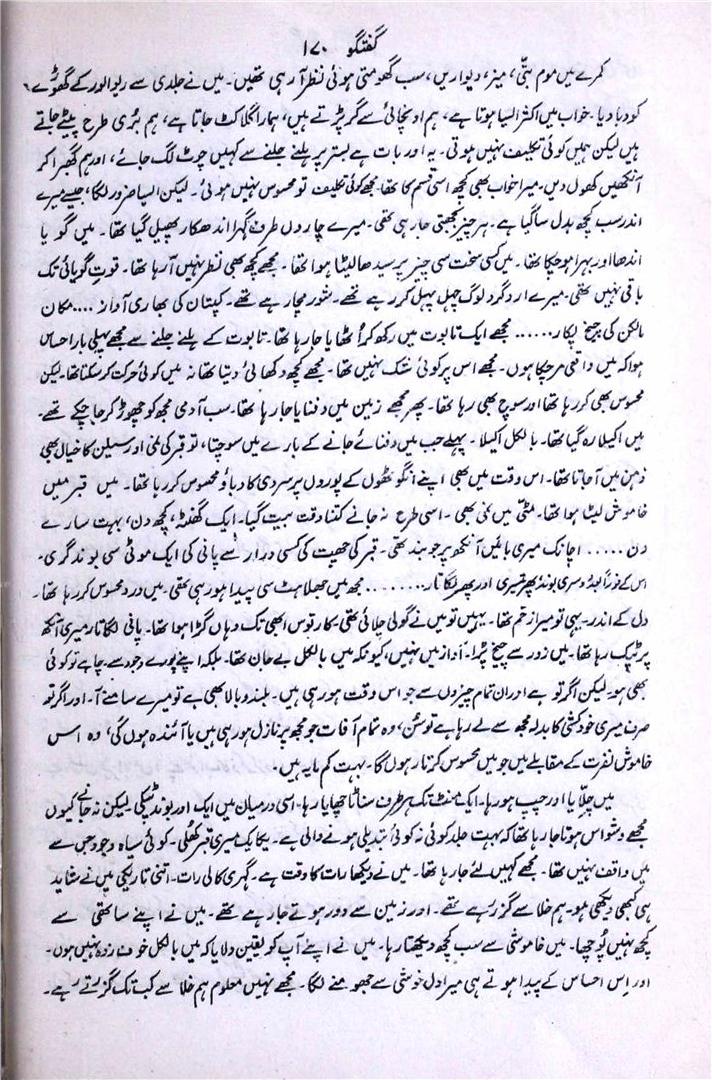 گفتگو ۱۷۰
کمرے میں موم بتّی، میز، دیواریں، سب گھومتی ہوئی نظر آ رہی تھیں۔ میں نے جلدی سے ریوالور کے گھوڑے
کو دبا دیا۔ خواب میں اکثر ایسا ہوتا ہے، ہم اونچائی سے گر پڑتے ہیں، ہمارا گلا کٹ جاتا ہے، ہم بُری طرح پیٹے جاتے
ہیں لیکن ہمیں کوئی تکلیف نہیں ہوتی۔ یہ اور بات ہے بستر پر ہلنے جلنے سے کہیں چوٹ لگ جائے، اور ہم گھبرا کر
آنکھیں کھول دیں۔ میرا خواب بھی کچھ اسی قسم کا تھا۔ مجھے کوئی تکلیف تو محسوس نہیں ہوئی۔ لیکن ایسا ضرور لگا، جیسے میرے
اندر سب کچھ بدل سا گیا ہے۔ ہر چیز بجھتی جا رہی تھی۔ میرے چاروں طرف گہرا اندھکار پھیل گیا تھا۔ میں گویا
اندھا اور بہرا ہو چکا تھا۔ میں کسی سخت سی چیز پر سیدھا لیٹا ہوا تھا۔ مجھے کچھ بھی نظر نہیں آ رہا تھا۔ قوتِ گویائی تک
باقی نہیں تھی۔ میرے ارد گرد لوگ چہل پہل کر رہے تھے۔ شور مچا رہے تھے۔ کپتان کی بھاری آواز .... مکان
مالکن کی چیخ پکار...... مجھے ایک تابوت میں رکھ کر اُٹھایا جا رہا تھا۔ تابوت کے ہلنے جلنے سے مجھے پہلی بار احساس
ہوا کہ میں واقعی مر چکا ہوں۔ مجھے اس پر کوئی شک نہیں تھا۔ مجھے کچھ دکھائی دیتا تھا نہ میں کوئی حرکت کر سکتا تھا۔ لیکن
محسوس بھی کر رہا تھا اور سوچ بھی رہا تھا۔ پھر مجھے زمین میں دفنایا جا رہا تھا۔ سب آدمی مجھ کو چھوڑ کر جا چکے تھے۔
میں اکیلا رہ گیا تھا۔ بالکل اکیلا۔ پہلے جب میں دفنائے جانے کے بارے میں سوچتا، تو قبر کی نمی اور سیلن کا خیال بھی
ذہن میں آ جاتا تھا۔ اس وقت میں بھی اپنے انگوٹھوں کے پوروں پر سردی کا دباؤ محسوس کر رہا تھا۔ میں قبر میں
خاموش لیٹا ہوا تھا۔ مٹی میں نمی تھی۔ اسی طرح نہ جانے کتنا وقت بیت گیا۔ ایک گھنٹہ، کچھ دن، بہت سارے
دن ..... اچانک میری بائیں آنکھ پر جو بند تھی۔ قبر کی چھت کی کسی درار سے پانی کی ایک موٹی سی بوند گری۔
اس کے فوراً بعد دوسری بوند پھر تیسری اور پھر لگاتار........ مجھ میں جھلاہٹ سی پیدا ہو رہی تھی۔ میں درد محسوس کر رہا تھا۔
دل کے اندر۔ یہی تو میرا زخم تھا۔ یہیں تو میں نے گولی چلائی تھی۔ کارتوس ابھی تک وہاں گڑا ہوا تھا۔ پانی لگاتار میری آنکھ
پر ٹپک رہا تھا۔ میں زور سے چیخ پڑا۔ آواز میں نہیں، کیونکہ میں بالکل بے جان تھا۔ بلکہ اپنے پورے وجود سے۔ چاہے تو کوئی
بھی ہو۔ لیکن اگر تو ہے اور ان تمام چیزوں سے جو اس وقت ہو رہی ہیں۔ بلند و بالا بھی ہے تو میرے سامنے آ۔ اور اگر تو
صرف میری خودکشی کا بدلہ مجھ سے لے رہا ہے تو سُن، وہ تمام آفات جو مجھ پر نازل ہو رہی ہیں یا آئندہ ہوں گی، وہ اس
خاموش نفرت کے مقابلے میں جو میں محسوس کرتا رہوں گا۔ بہت کم مایہ ہیں۔
میں چلّایا اور چپ ہو رہا۔ ایک منٹ تک ہر طرف سناٹا چھایا رہا۔ اسی درمیان میں ایک اور بوند ٹپکی۔ لیکن نہ جانے کیوں
مجھے وشواس ہوتا جا رہا تھا کہ بہت جلد کوئی نہ کوئی تبدیلی ہونے والی ہے۔ یکایک میری قبر کھُلی۔ کوئی سیاہ وجود جس سے
میں واقف نہیں تھا۔ مجھے کہیں لئے جا رہا تھا۔ میں نے دیکھا رات کا وقت ہے۔ گہری کالی رات۔ اتنی تاریکی میں نے شاید
ہی کبھی دیکھی ہو۔ ہم خلا سے گزر رہے تھے۔ اور زمین سے دور ہوتے جا رہے تھے۔ میں نے اپنے ساتھی سے
کچھ نہیں پُوچھا۔ میں خاموشی سے سب کچھ دیکھتا رہا۔ میں نے اپنے آپ کو یقین دلایا کہ میں بالکل خوف زدہ نہیں ہوں۔
اور اِس احساس کے پیدا ہوتے ہی میرا دل خوشی سے جھومنے لگا۔ مجھے نہیں معلوم ہم خلا سے کب تک گزرتے رہے۔